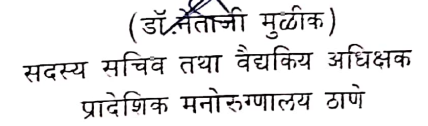 (डॉ.नेताजी मुळीक)
सदस्य सचिव तथा वैद्यकिय अधिक्षक
प्रादेशिक मनोरुग्णालय ठाणे